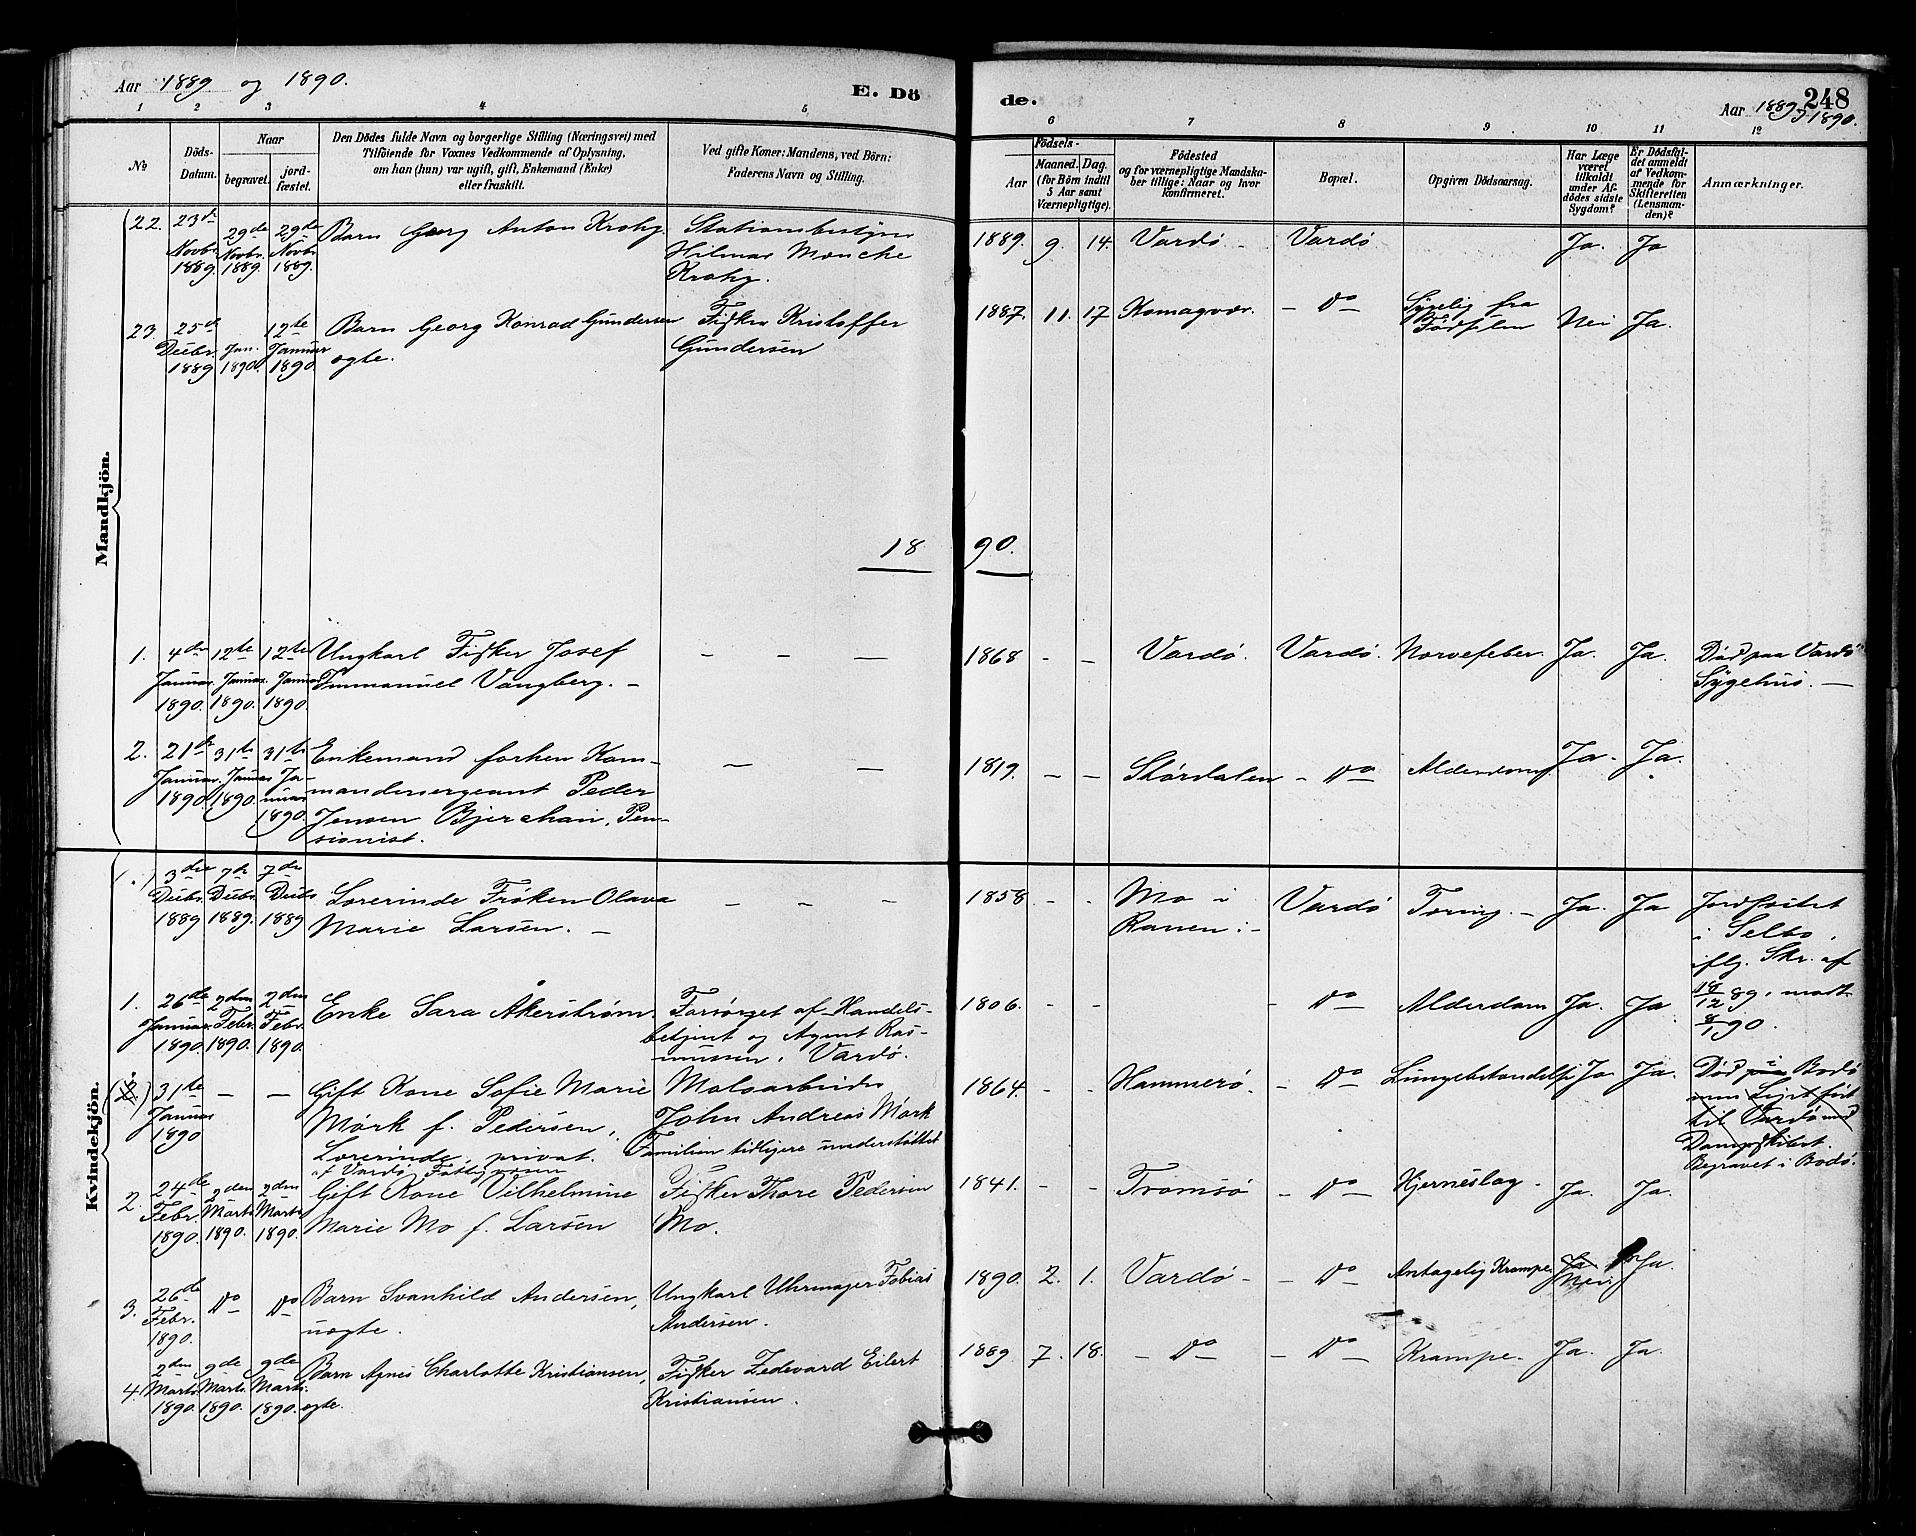 Aar 1889 og 1890.
E. Dö
de.
248
Aar 1889 1890.
1 2 3 4 5 6 7 8 9 10 11 12
No
Döds-
Datum.
Naar
begravet.
jord-
fæstet.
Den Dödes fulde Navn og borgerlige Stilling (Næringsvei) med
Tilföiende for Voxnes Vedkommende af Oplysning,
om han (hun) var ugift, gift, Enkemand (Enke)
eller fraskilt.
Ved gifte Koner: Mandens, ved Börn:
Faderens Navn og Stilling.
Födsels-
Aar
Maaned. Dag.
(for Börn indtil
5 Aar samt
Værnepligtige).
Födested
og for værnepligtige Mandska-
ber tillige: Naar og hvor
konfirmeret.
Bopæl.
Opgiven Dödsaarsag.
Har Læge
været
tilkaldt
under Af-
dödes sidste
Sygdom?
Er Dödsfal-
det anmeldt
af Vedkom-
mende for
Skifteretten
(Lensman-
den)?
Anmærkninger.
Mandkjön.
22. 23de Novbr. 1889. 29de Novbr. 1889. 29de Novbr. 1889.
Barn Georg Anton Krohg.
Stationsbestyrer
Hilmar Monche
Krohg.
1889. 9. 14. Vardö - Vardö Ja. Ja
23. 25de Decbr. 1889 Jan. 1890. 12te Januar 1890.
Barn Georg Konrad Gundersen
ogte.
Fisker Kristoffer
Gundersen
1887. 11. 17 Komagvær. - Do - Sygelig fra
Födselen Nei Ja.
18 90.
1. 4de Januar. 1890. 12te Januar. 1890. 12te Januar 1890.
Ungkarl Fisker Josef
Emmanuel Vangberg. -
- - -
1868 - - Vardö. Vardö. Nervefeber. Ja. Ja. Död paa Vardö
Sygehus. -
2. 21de Januar. 1890. 31te Januar 1890. 31te Januar 1890.
Enkemand forhen Kom-
mandersergeant Peder
Jensen Bjerchan, Pen-
sionist.
- -
1819. - - Stördalen - Do - Alderdom. Ja. Ja.
Kvindekjön.
(1.) 3die Decbr. 1889 7de Decbr. 1889. 7de Decbr. 1889
Lærerinde Fröken Olava
Marie Larsen. -
- - -
1858 - - Mo i
Ranen: - Vardö Tæring. - Ja. Ja Jordfæstet
i Selbo,
iflg. Skr. af
18/12 89, modt.
8/1 90.
1. 26de Januar. 1890. 2den Febr. 1890. 2den Febr. 1890.
Enke Sara Åkerström.
Forsörget af Handels-
betjent og Agent Ras-
mussen i Vardö.
1806. - - - Do - Alderdom Ja. Ja.
(2) 31te Januar 1890 - -
Gift Kone Sofie Marie
Mörk f. Pedersen,
Lærerinde, privat.
af Vardö Fattigvæsen
Malsarbeider
John Andreas Mörk
Familien tidligere understöttet
1864. - - Hammerö. - Do - Lungebetændelse Ja Ja. Död paa i Bodö
men Liget fört
til Vardö med
Dampskibet.
Begravet i Bodö.
2. 24de Febr. 1890. 2den Marts 1890. 2den Marts 1890.
Gift Kone Vilhelmine
Marie Mo f. Larsen
Fisker Thore Pedersen
Mo.
1841. - - Tromsö - Do - Hjerneslag - Ja. Ja.
3. 26de Febr. 1890. Do Do
Barn Svanhild Andersen,
uægte.
Ungkarl Uhrmager Tobias
Andersen.
1890. 2. 1. Vardö - - Do - Antagelig Krampe. Ja Nei Ja.
4. 2den Marts. 1890. 9de Marts. 1890. 9de Marts. 1890.
Barn Agnes Charlotte Kristiansen,
ogte.
Fisker Zedevard Eilert
Kristiansen.
1889. 7. 18. - Do - - Do - Krampe. Ja. Ja.